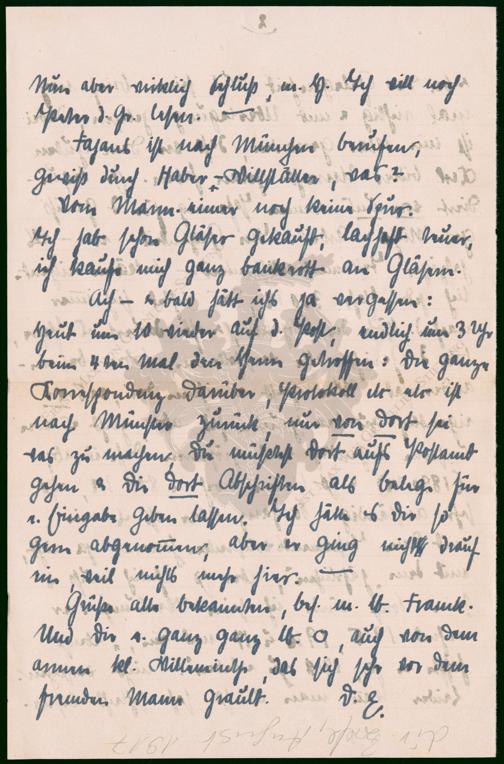 2
Nun aber wirklich Schluß, m. H. Ich will noch
Peter d. Gr. lesen. —
Fajans ist nach München berufen,
gewiß durch Haber-Willstätter, was?
Vom Mann-eimer noch keine Spur.
Ich hab schon Gläser gekauft, lachhaft teuer,
ich kaufe mich ganz bankrott an Gläsern.
Ach – u bald hätt ichs ja vergessen:
Heut um 10 wieder auf d. Post, endlich um 3 Uhr
beim 4ten Mal den Herrn getroffen: die ganze
Korrespondenz darüber, Protokoll etc etc ist
nach Münster zurück, nur von dort sei
was zu machen. Du müßtest dort aufs Postamt
gehen u Dir dort Abschriften als belege für
e. Eingabe geben lassen. Ich hätte es dir so
gern abgenommen, aber er ging nicht drauf
ein, weil nichts mehr hier. —
Grüße alle bekannten, bes. m. lb. Franck.
Und Dir e. ganz ganz lb O, auch von dem
armen kl. das sich sehr vor dem
fremden Mann grault. D. E.
August 1917